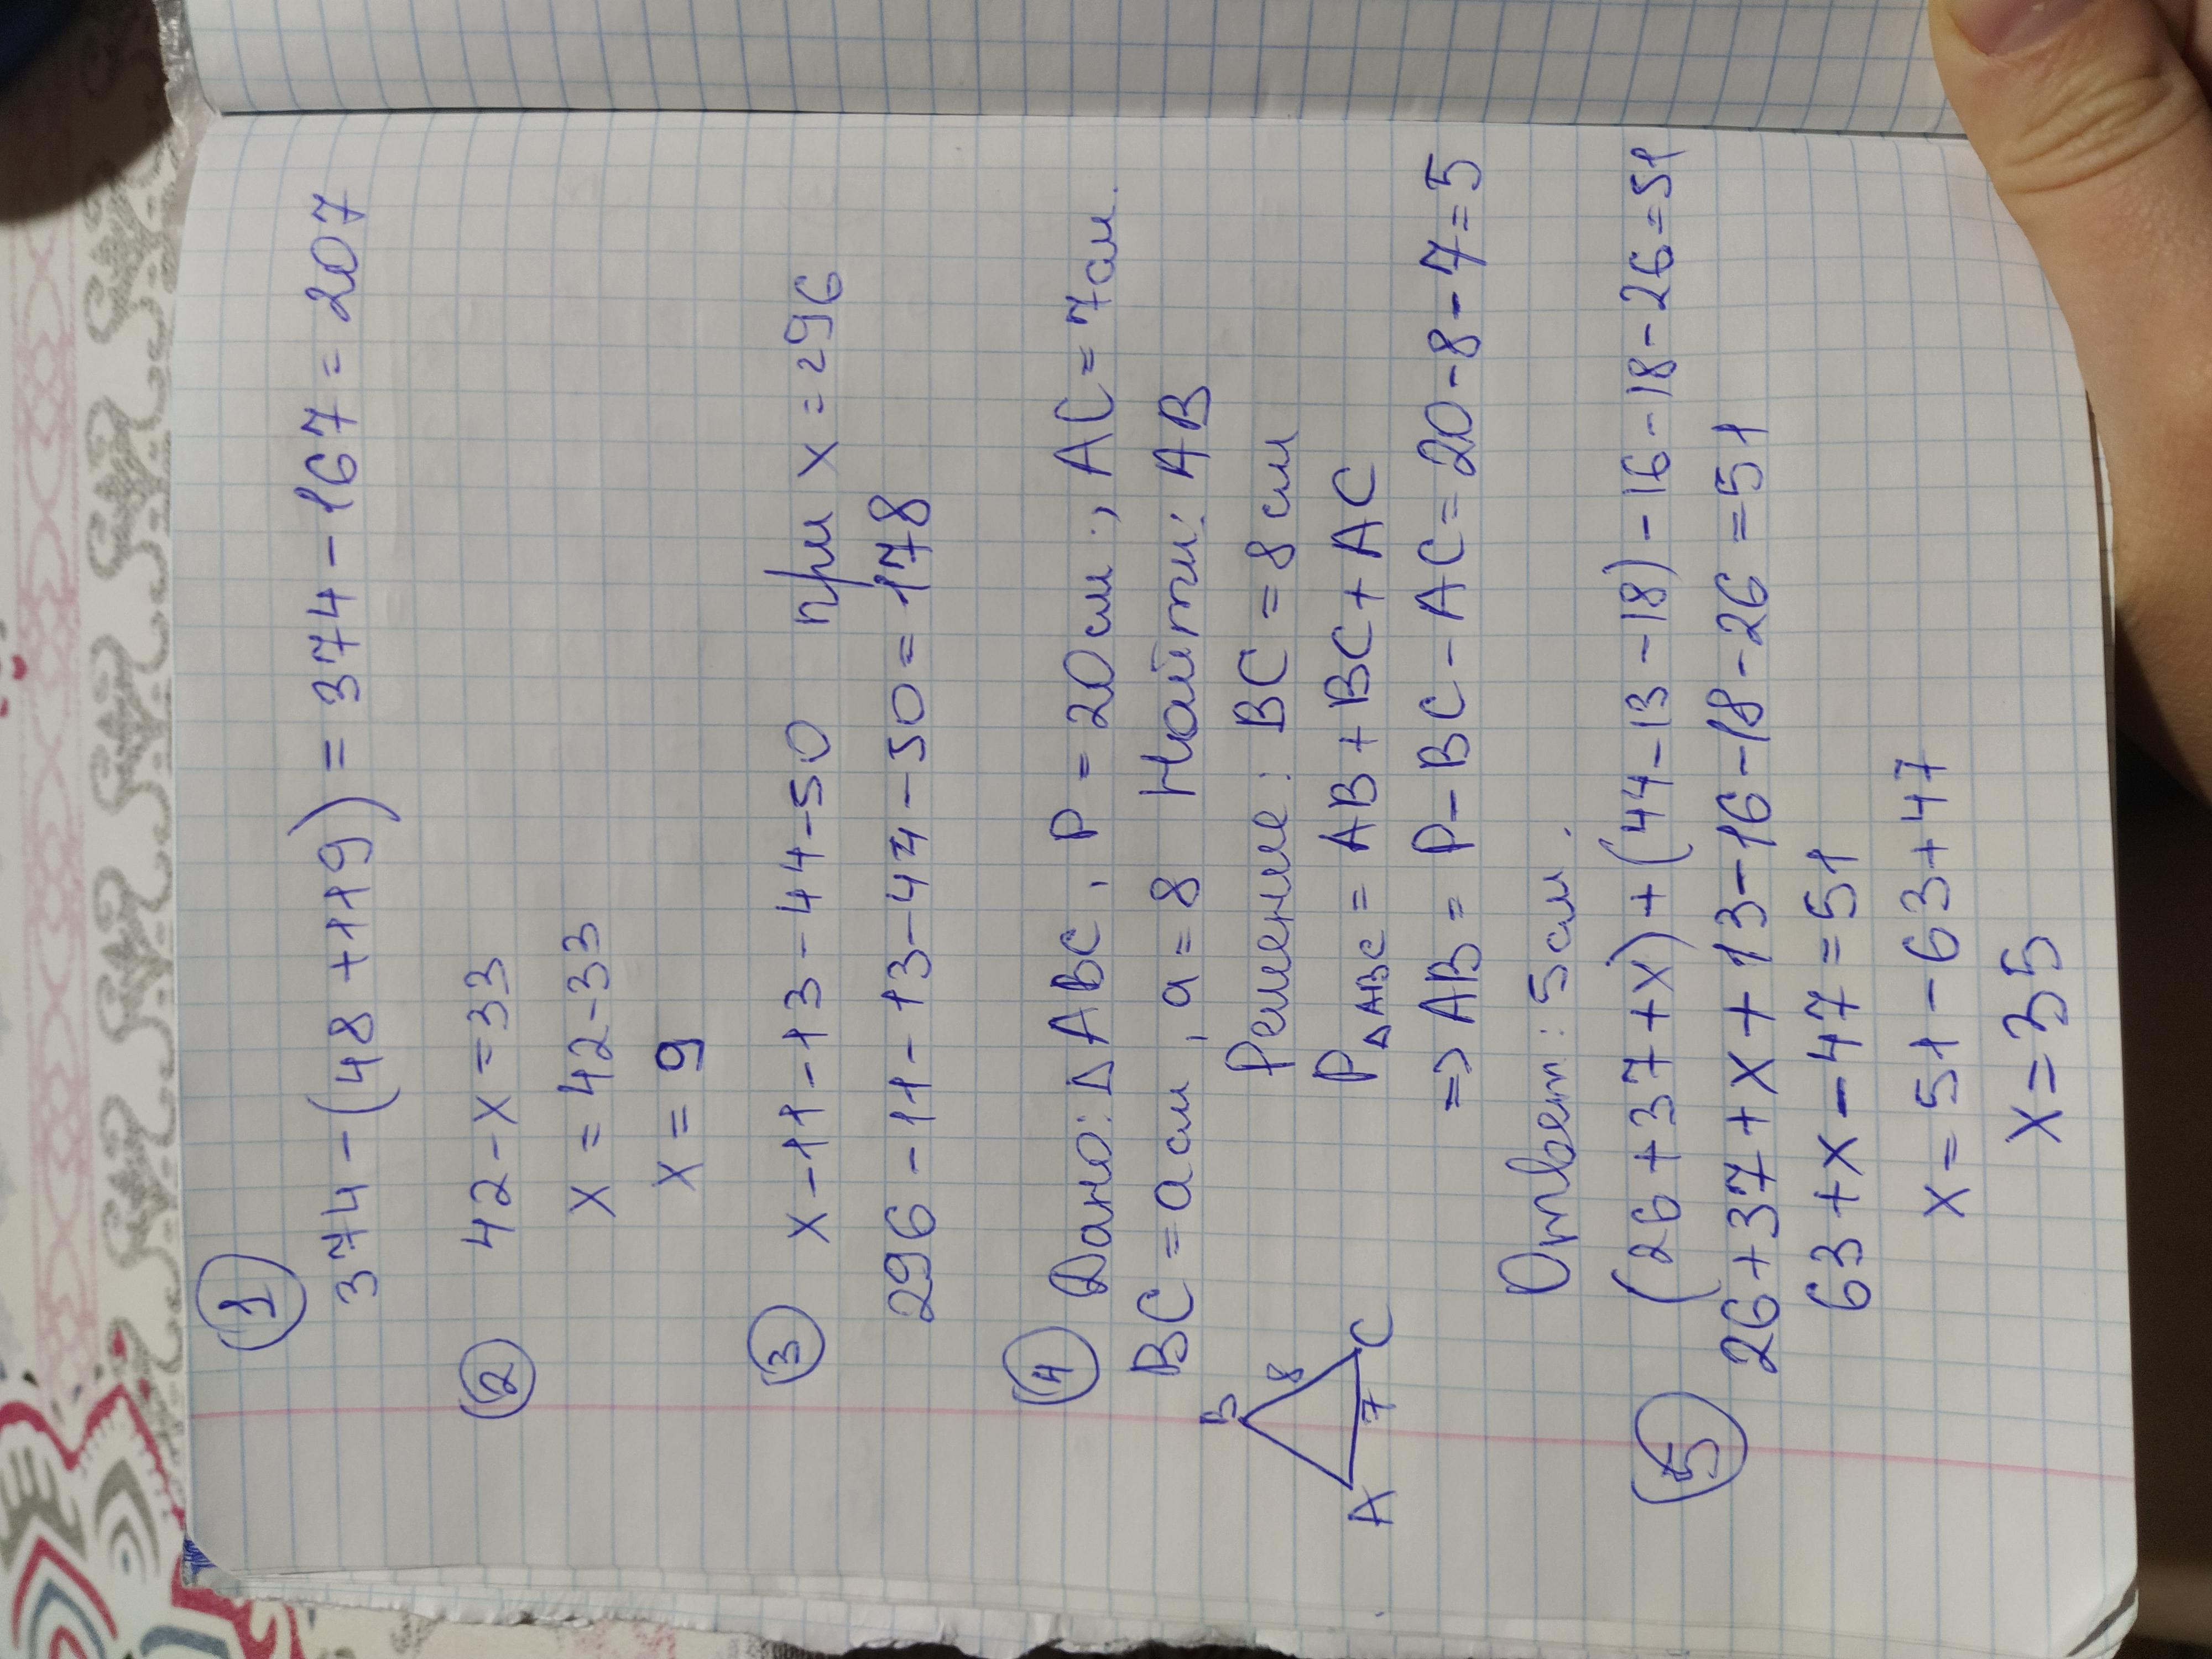 1
374 - (48 + 119) = 374 - 167 = 207
2 42 - x = 33
x = 42 - 33
x = 9
3 x - 11 - 13 - 44 - 50 при x = 296
296 - 11 - 13 - 44 - 50 = 178
4 Дано: Δ ABC, P = 20 см, AC = 7 см.
BC = a см, a = 8 Найти: AB
Решение: BC = 8 см
B 8 C 7 A
P Δ ABC = AB + BC + AC
=> AB = P - BC - AC = 20 - 8 - 7 = 5
Ответ: 5 см.
5 (26 + 37 + x) + (44 - 13 - 18) - 16 - 18 - 26 = 51
26 + 37 + x + 13 - 16 - 18 - 26 = 51
63 + x - 47 = 51
x = 51 - 63 + 47
x = 35